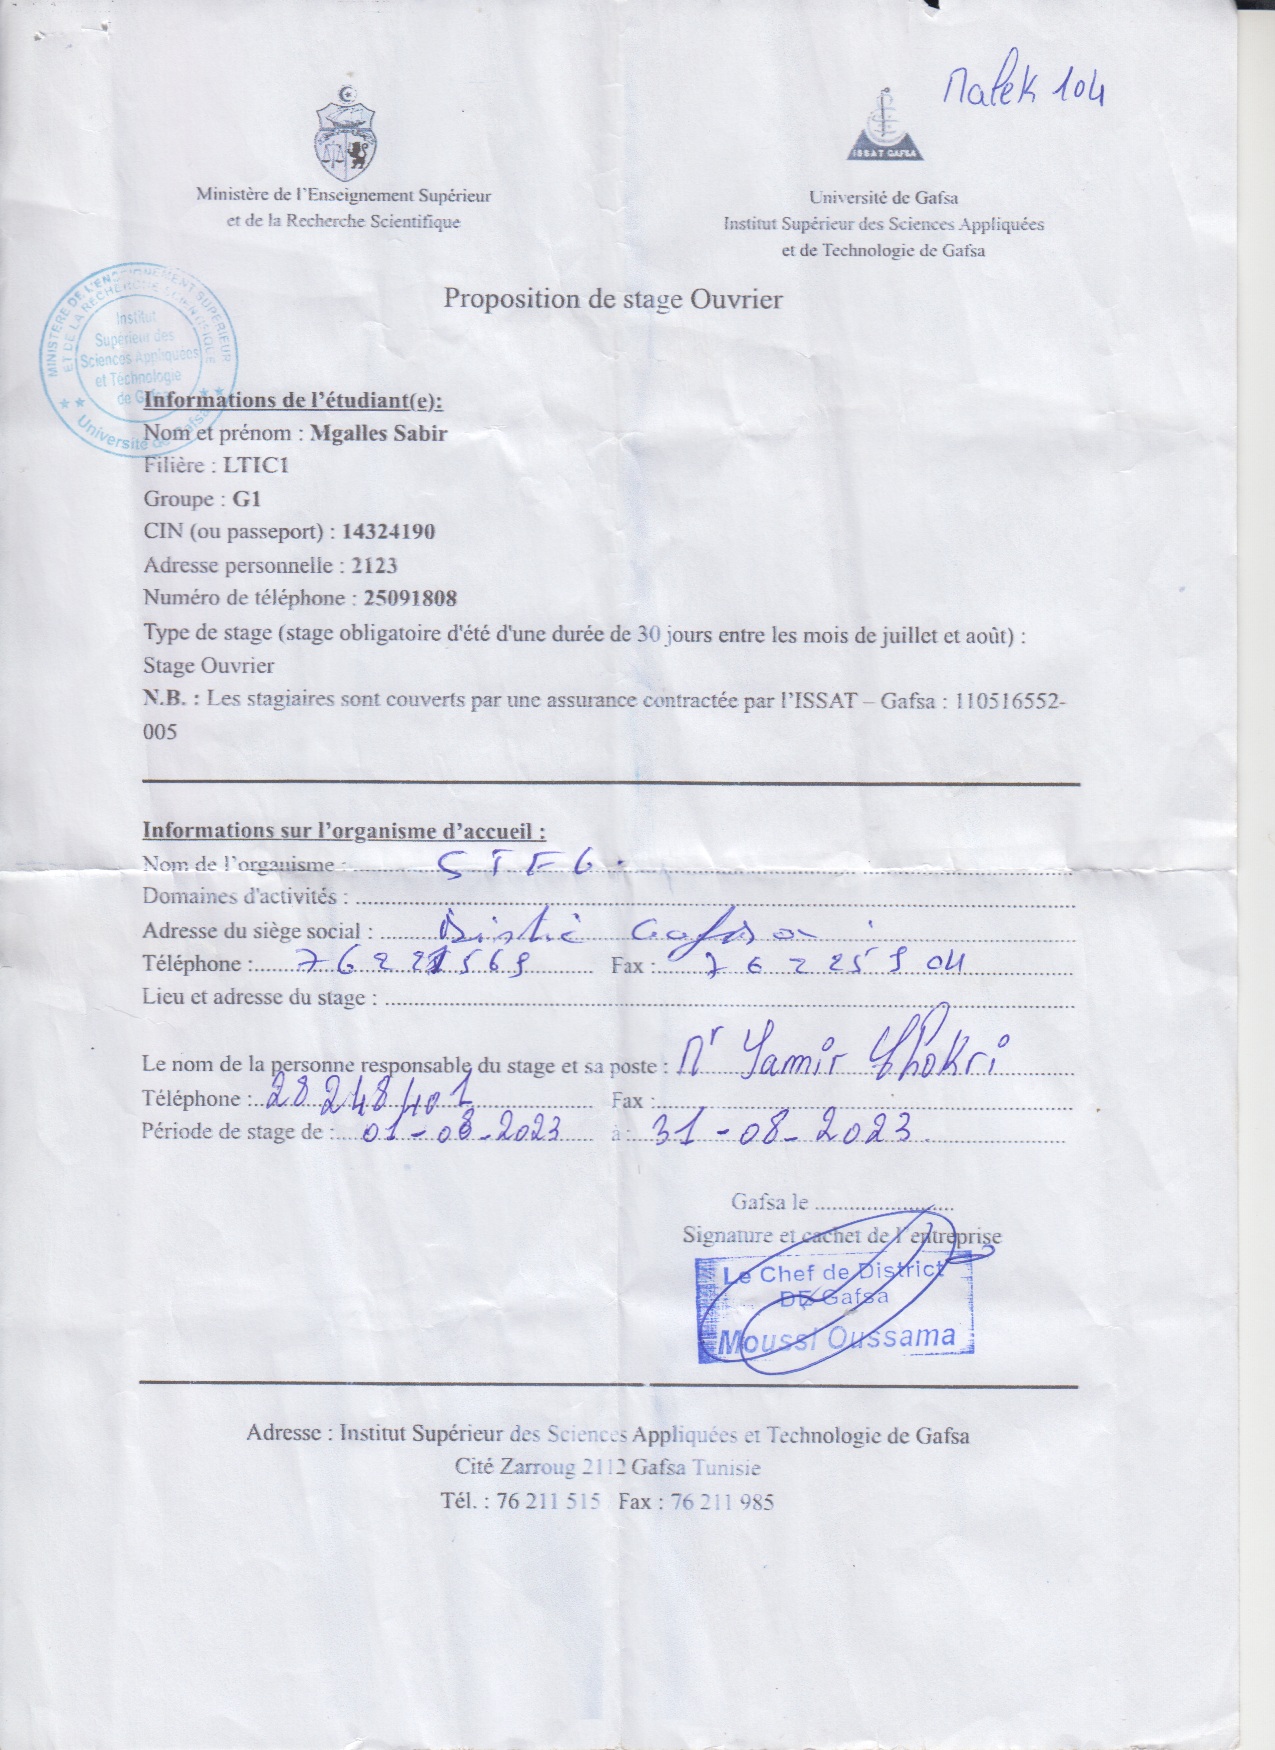 Malek 104
ISSAT GAFSA
Ministère de l'Enseignement Supérieur
et de la Recherche Scientifique
Université de Gafsa
Institut Supérieur des Sciences Appliquées
et de Technologie de Gafsa
Proposition de stage Ouvrier
MINISTERE DE L'ENSEIGNEMENT SUPERIEUR
ET DE LA RECHERCHE SCIENTIFIQUE
Institut
Supérieur des
Sciences Appliquées
et Technologie
de Gafsa
Université de Gafsa
Informations de l'étudiant(e):
Nom et prénom : Mgalles Sabir
Filière : LTIC1
Groupe : G1
CIN (ou passeport) : 14324190
Adresse personnelle : 2123
Numéro de téléphone : 25091808
Type de stage (stage obligatoire d'été d'une durée de 30 jours entre les mois de juillet et août) :
Stage Ouvrier
N.B. : Les stagiaires sont couverts par une assurance contractée par l'ISSAT – Gafsa : 110516552-
005
Informations sur l'organisme d'accueil :
Nom de l'organisme : STEG.
Domaines d'activités :
Adresse du siège social : Gafsa
Téléphone : Fax : 76 225 904
Lieu et adresse du stage :
Le nom de la personne responsable du stage et sa poste : Mr Samir Chokri
Téléphone : 28248401 Fax :
Période de stage de : 01-08-2023 à : 31-08-2023
Gafsa le
Signature et cachet de l'entreprise
Le Chef de District
DE Gafsa
Moussi Oussama
Adresse : Institut Supérieur des Sciences Appliquées et Technologie de Gafsa
Cité Zarroug 2112 Gafsa Tunisie
Tél. : 76 211 515 Fax : 76 211 985